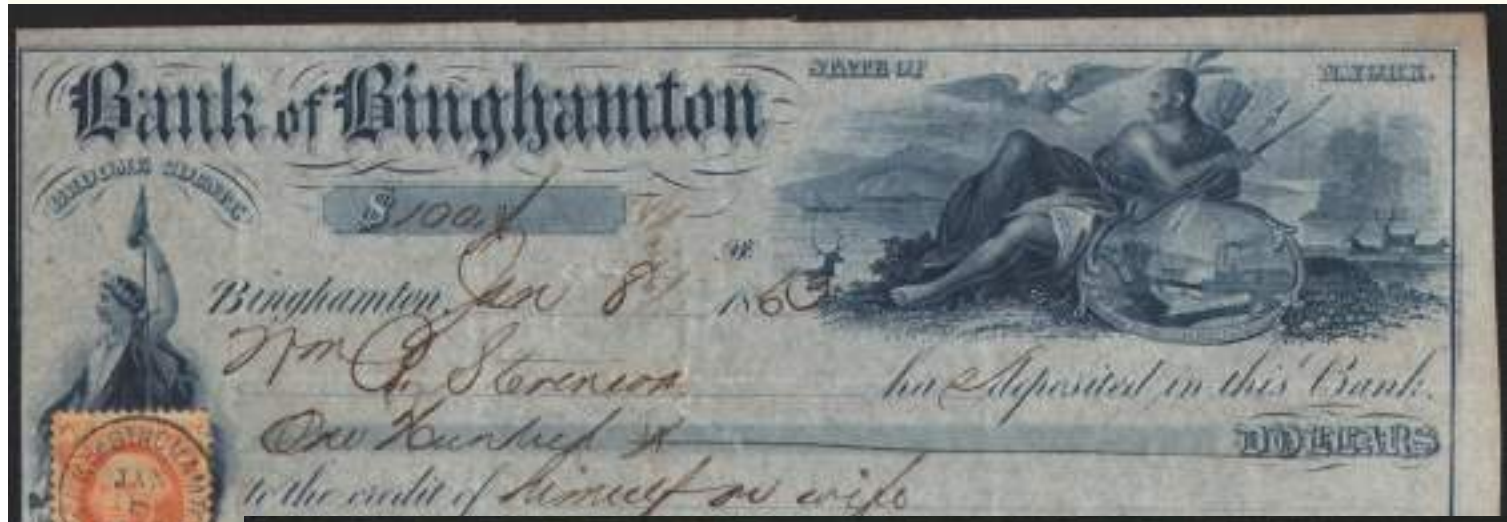 Bank of Binghamton
STATE OF NEW YORK.
BROOME COUNTY
$100
No.
Binghamton, Jan 8th 1863
Wm Stevenson
has deposited in this Bank.
One Hundred
DOLLARS
to the credit of himself or wife
JAN